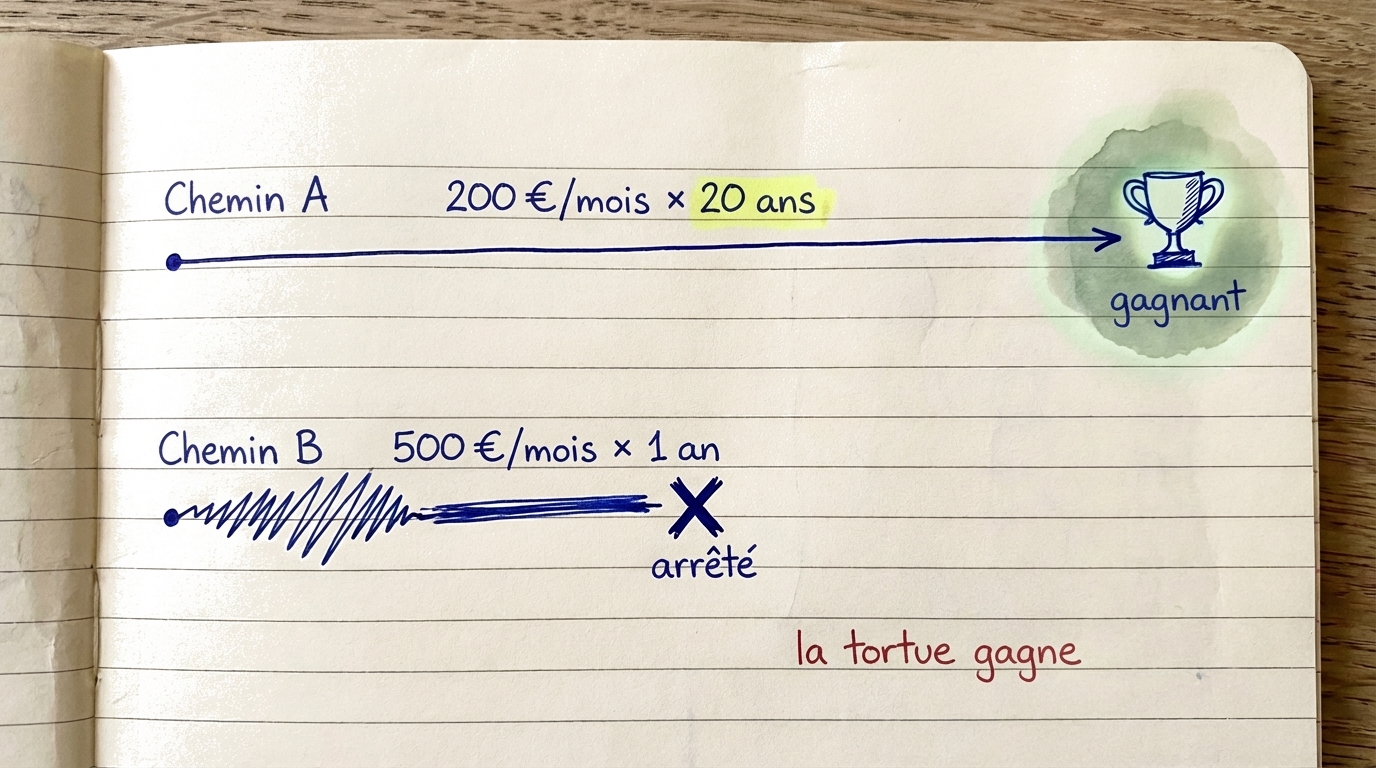 Chemin A 200 €/mois × 20 ans
gagnant
Chemin B 500 €/mois × 1 an
arrêté
la tortue gagne